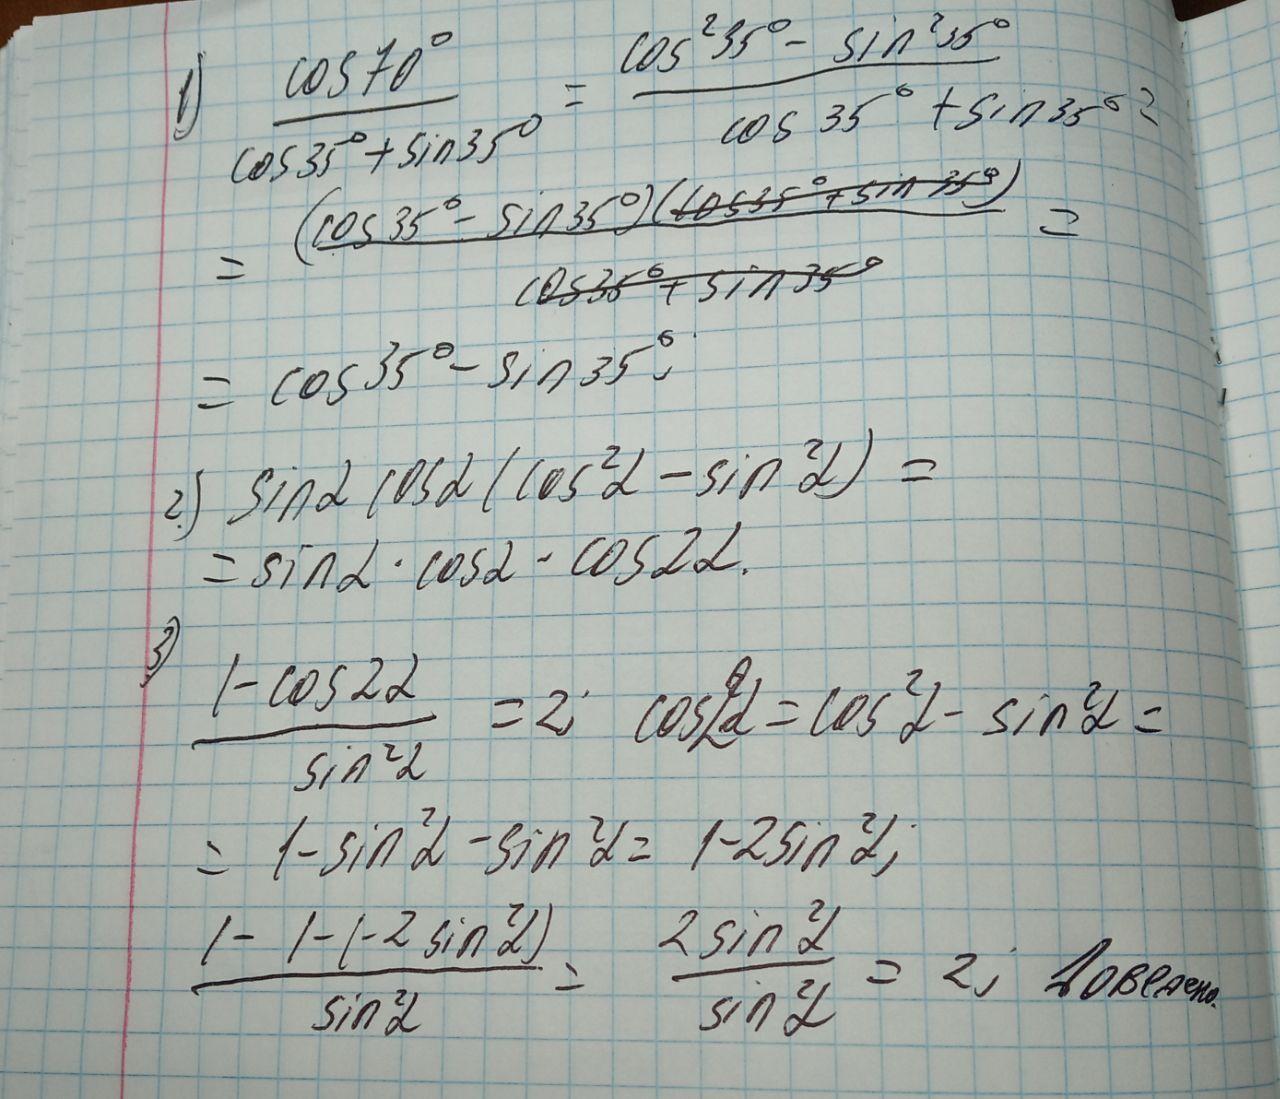 1) cos70° / cos35° + sin35° = cos²35° - sin²35° / cos35° + sin35° =
= (cos35° - sin35°)(cos35° + sin35°) / cos35° + sin35° =
= cos35° - sin35°;
2.) sinα cosα (cos²α - sin²α) =
= sinα · cosα · cos2α.
3) 1 - cos2α / sin²α = 2; cos2α = cos²α - sin²α =
= 1 - sin²α - sin²α = 1 - 2sin²α;
1 - 1 - (-2sin²α) / sin²α = 2sin²α / sin²α = 2; Доведено.